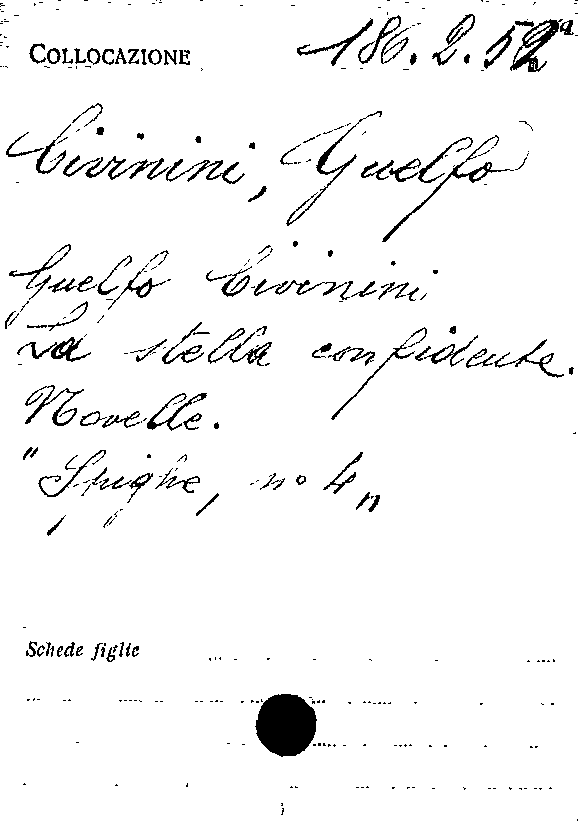 COLLOCAZIONE 186.2.52a
Civinini, Guelfo
Guelfo Civinini
La stella confidente.
Novelle.
"Spighe, no 4"
Schede figlie